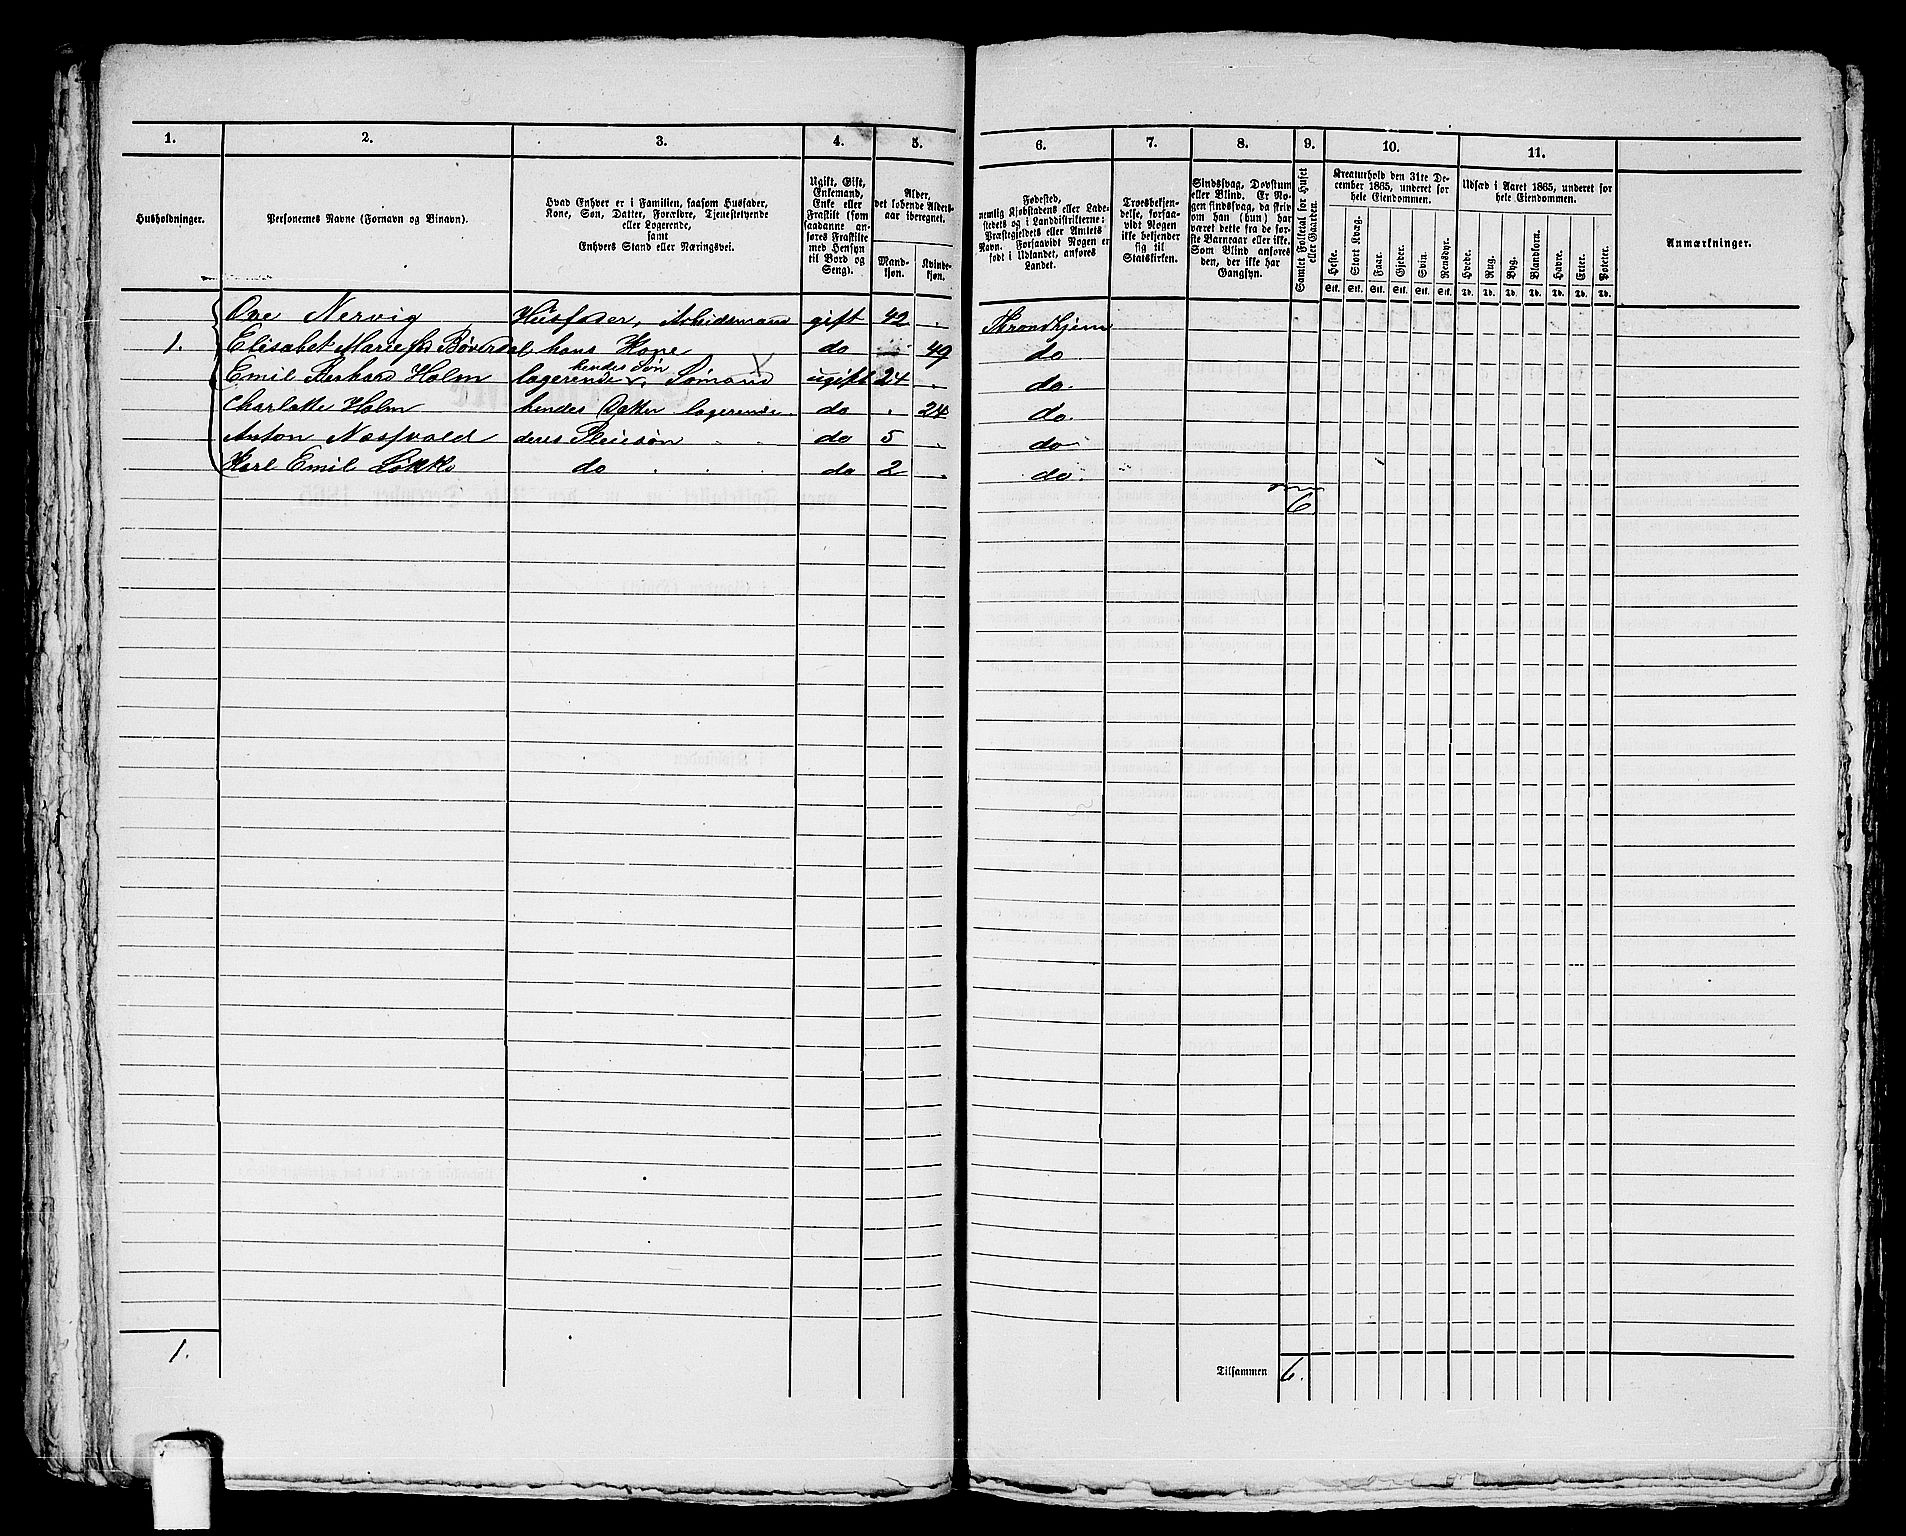 1. 2. 3. 4. 5. 6. 7. 8. 9. 10. 11.
Husholdninger.
Personernes Navne (Fornavn og Binavn).
Hvad Enhver er i Familien, saasom Husfader,
Kone, Søn, Datter, Forældre, Tjenestetyende
eller Logerende,
samt
Enhvers Stand eller Næringsvei.
Ugift, Gift,
Enkemand,
Enke eller
Fraskilt (som
saadanne an-
føres Fraskilte
med Hensyn
til Bord og
Seng).
Alder,
det løbende Alders-
aar iberegnet.
Mand-
kjøn.
Kvinde-
kjøn.
Fødested,
nemlig Kjøbstadens eller Lade-
stedets og i Landdistrikterne:
Præstegjeldets eller Amtets
Navn. Forsaavidt Nogen er
født i Udlandet, anføres
Landet.
Troesbekjen-
delse, forsaa-
vidt Nogen
ikke bekjender
sig til
Statskirken.
Sindssvag, Døvstum
eller Blind. Er No-
gen sindssvag, da friv
om han (hun) har
været dette fra de før-
ste Barneaar eller ikke.
Som Blind anføres
den, der ikke har
Gangsyn.
Samlet Folketal for Huset
eller Gaarden.
Kreaturhold den 31te De-
cember 1865, underet for
hele Eiendommen.
Heste. Stort Kvæg. Faar. Gjeder. Svin. Rensdyr.
Stk. Stk. Stk. Stk. Stk. Stk.
Udsæd i Aaret 1865, underet for
hele Eiendommen.
Hvede. Rug. Byg. Blandkorn. Havre. Erter. Poteter.
Td. Td. Td. Td. Td. Td. Td.
Anmærkninger.
Ove Nervig Husfader, Arbeidsmand gift 42 . Throndhjem
1. Elisabet Marie Bøverdal hans Kone do 49 do
hendes Søn
Emil Berhard Holm logerende, Sømand ugift 24 . do.
Charlotte Holm hendes Datter logerende. do . 24 do.
Anton Næsfvold deres Pleiesøn do 5 . do
Karl Emil Løkke do . . do 2 . do.
6
1.
Tilsammen 6.